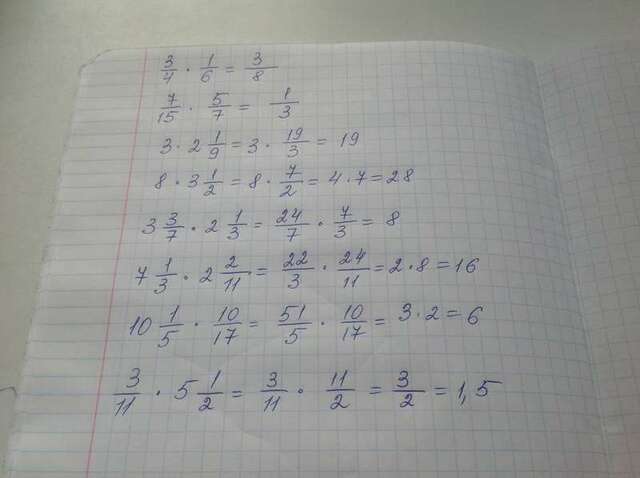 3/4 · 1/6 = 3/8
7/15 · 5/7 = 1/3
3 · 2 1/9 = 3 · 19/3 = 19
8 · 3 1/2 = 8 · 7/2 = 4 · 7 = 28
3 3/7 · 2 1/3 = 24/7 · 7/3 = 8
7 1/3 · 2 2/11 = 22/3 · 24/11 = 2 · 8 = 16
10 1/5 · 10/17 = 51/5 · 10/17 = 3 · 2 = 6
3/11 · 5 1/2 = 3/11 · 11/2 = 3/2 = 1,5